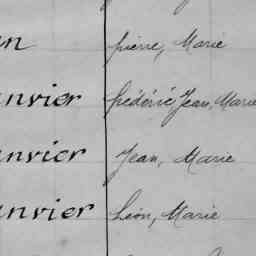 n pierre, Marie
nvier frédéric Jean, Marie
anvier Jean, Marie
anvier Léon, Marie